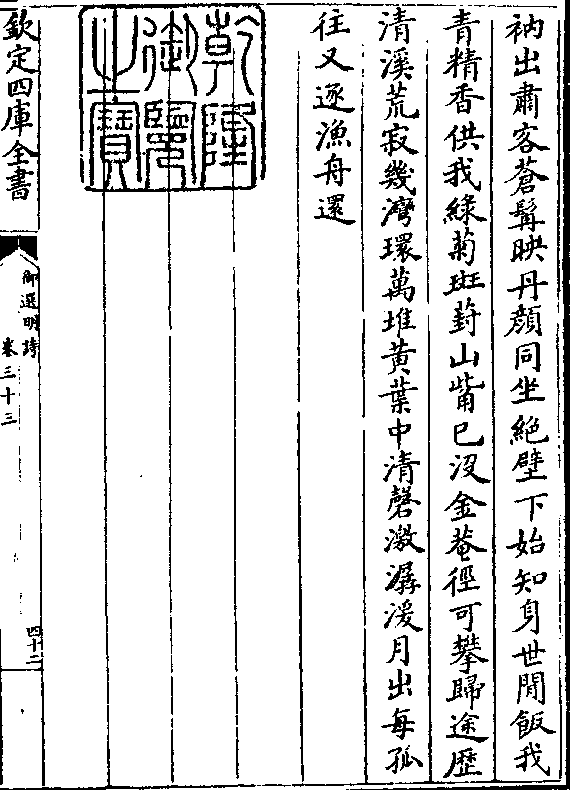 衲出肅客蒼髯映丹顔同坐絶壁下始知身世閒飯我
青精香供我緑菊斑葑山觜已没金菴徑可攀歸途歴
清溪荒寂幾灣環萬堆黄葉中清磬激潺湲月出每孤
往又逐漁舟還
乾隆
御覽
之寶
欽定四庫全書
御選明詩
卷三十三
四十二